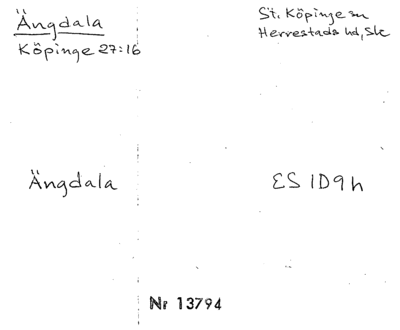 Ängdala
Köpinge 27:16
St. Köpinge sn
Herrestads hd, Sk
Ängdala
ES 1D9h
Nr 13794